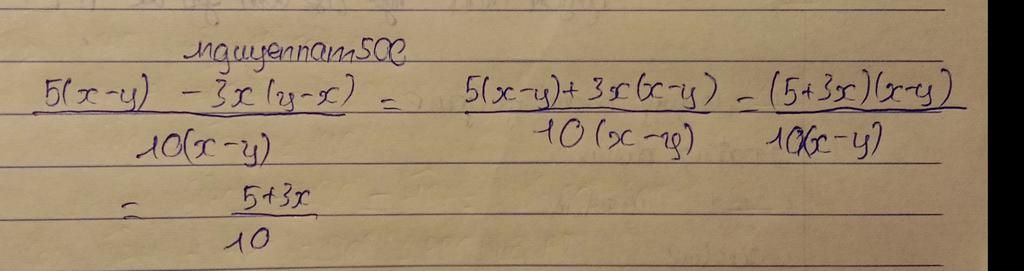 nguyennam50C
5(x-y) - 3x(y-x) / 10(x-y) = 5(x-y)+3x(x-y) / 10(x-y) = (5+3x)(x-y) / 10(x-y)
= 5+3x / 10